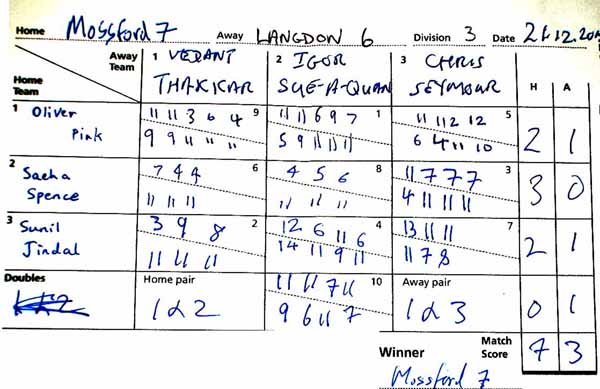 Home Mossford 7 Away LANGDON 6 Division 3 Date 21.12.20
Away Team 1 VEDANT THAKKAR 2 IGOR SUE-A-QUAN 3 CHRIS SEYMOUR H A
Home Team
1 Oliver Pink
11 11 3 6 4 9
9 9 11 11 11
11 11 6 9 7 1
5 9 11 11 11
11 11 2 12 12 5
6 4 11 11 10
2 1
2 Sacha Spence
7 4 4 6
11 11 11
4 5 6 8
11 11 11
11 7 7 7 3
4 11 11 11
3 0
3 Sunil Jindal
3 9 8 2
11 11 11
12 6 11 6 4
14 11 9 11
13 11 11 7
11 7 8
2 1
Doubles
Home pair
1 & 2
11 11 7 11 10
9 6 11 7
Away pair
1 & 3
0 1
Winner Mossford 7
Match Score 7 3